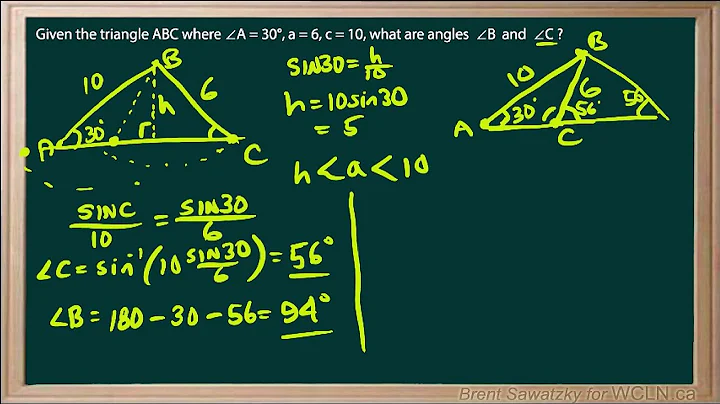 Given the triangle ABC where ∠A = 30°, a = 6, c = 10, what are angles ∠B and ∠C ?
B
10
h
6
30°
r
A
C
sin30 = h/10
h = 10 sin30
= 5
h < a < 10
B
10
6
56°
30°
r
56°
A
C
sinC/10 = sin30/6
∠C = sin⁻¹(10 sin30/6) = 56°
∠B = 180 - 30 - 56 = 94°
Brent Sawatzky for WCLN.ca